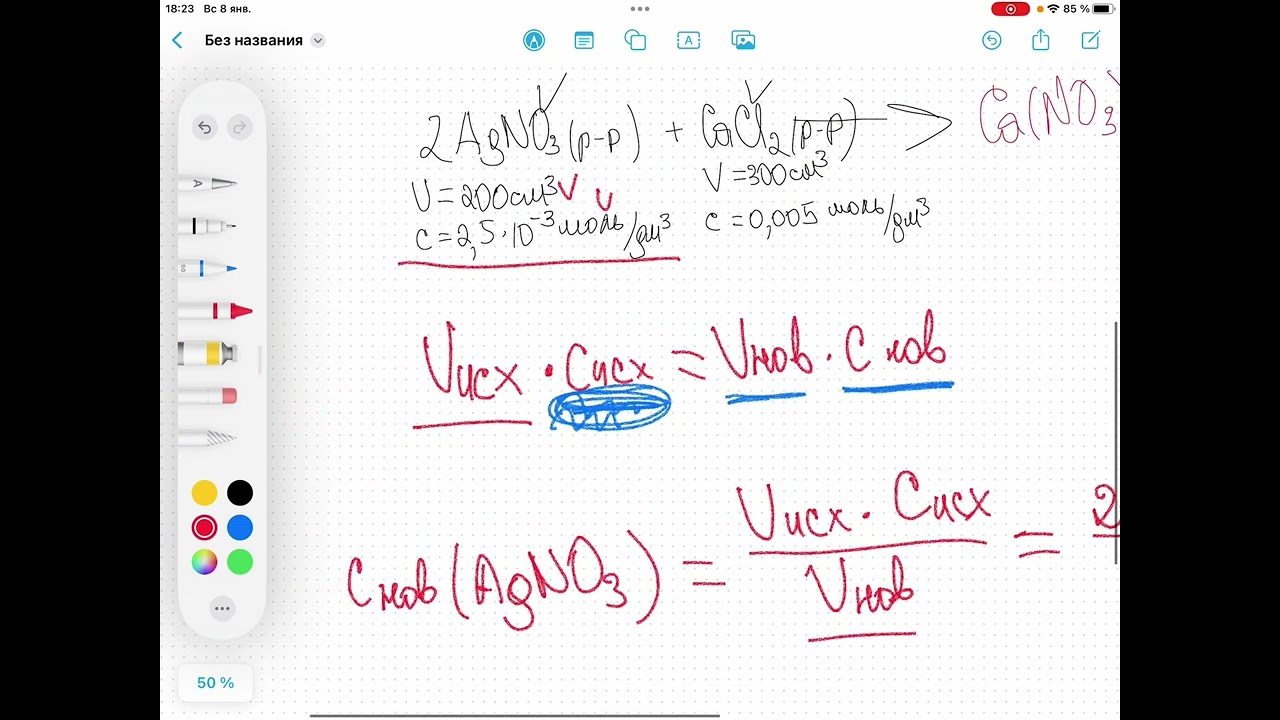 18:23 Вс 8 янв. 85 %
Без названия
2AgNO3(р-р) + CaCl2(р-р) → Ca(NO3
V = 200 см³ V = 300 см³
c = 2,5 · 10⁻³ моль/дм³ c = 0,005 моль/дм³
Vисх · Cисх = Vнов · C нов
Cнов(AgNO3) = Vисх · Cисх / Vнов = 2
50 %